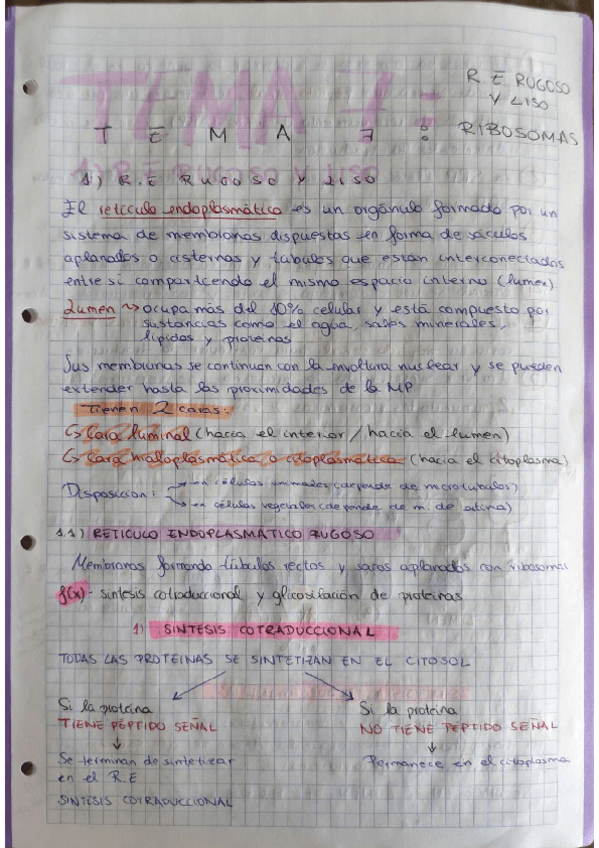 TEMA 7:
R E RUGOSO
Y LISO
RIBOSOMAS
1) R.E RUGOSO Y LISO
El retículo endoplasmático es un orgánulo formado por un
sistema de membranas dispuestas en forma de sáculos
aplanados o cisternas y túbulos que están interconectados
entre sí compartiendo el mismo espacio interno (lumen)
Lumen ~> ocupa más del 10% celular y está compuesto por
sustancias como el agua, sales minerales,
lípidos y proteínas
Sus membranas se continúan con la envoltura nuclear y se pueden
extender hasta las proximidades de la MP
Tienen 2 caras:
↳ Cara luminal (hacia el interior / hacia el lumen)
↳ Cara hialoplasmática o citoplasmática (hacia el citoplasma)
Disposición: → en células animales (depende de microtúbulos)
→ en células vegetales (depende de m. de actina)
1.1) RETICULO ENDOPLASMATICO RUGOSO
Membranas formando túbulos rectos y sacos aplanados con ribosomas
f(x) - síntesis cotraduccional y glicosilación de proteínas
1) SINTESIS COTRADUCCIONAL
TODAS LAS PROTEINAS SE SINTETIZAN EN EL CITOSOL
Si la proteína
TIENE PÉPTIDO SEÑAL
↓
Se terminan de sintetizar
en el R.E
SINTESIS COTRADUCCIONAL
Si la proteína
NO TIENE PÉPTIDO SEÑAL
↓
Permanece en el citoplasma